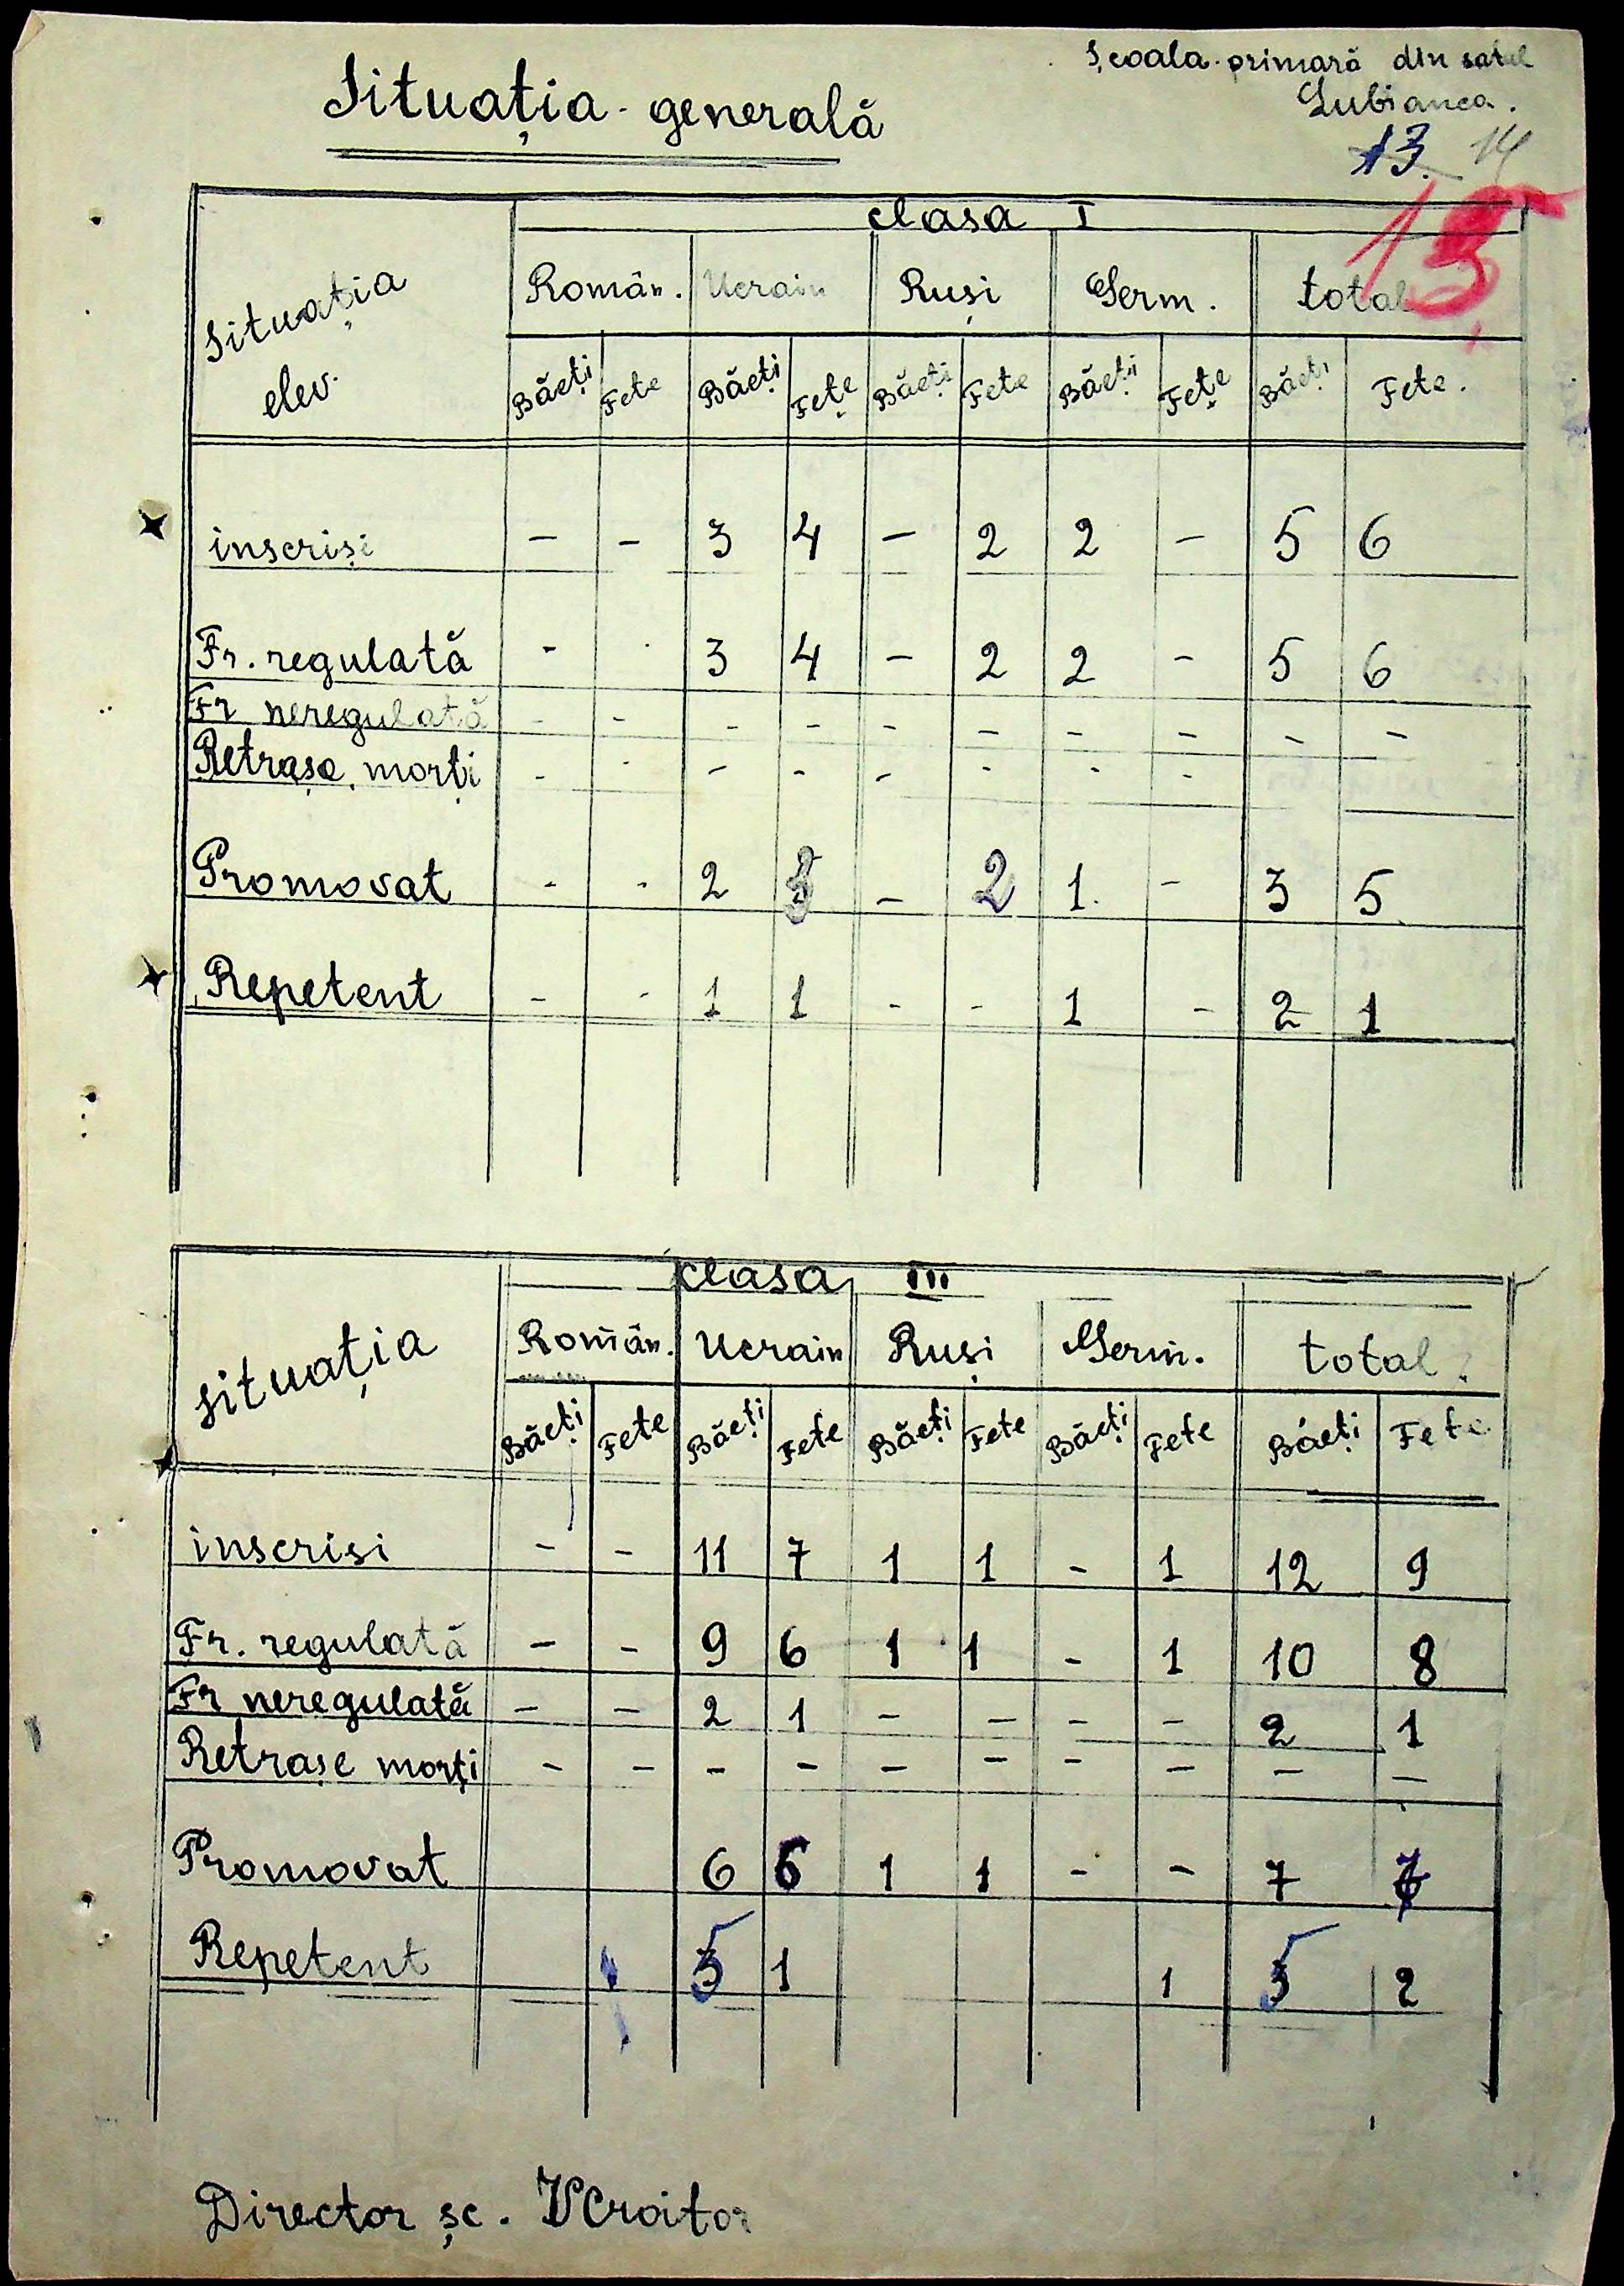 Școala primară din satul
Lubianca.
Situația generală
13. 14
15
clasa I
Situația elev. Român. Ucrain Ruși Germ. total
Băeți Fete Băeți Fete Băeți Fete Băeți Fete Băeți Fete.
inscriși - - 3 4 - 2 2 - 5 6
Fr. regulată - - 3 4 - 2 2 - 5 6
Fr neregulată - - - - - - - - - -
Retrașe, morți - - - - - - - -
Promovat - - 2 3 - 2 1. - 3 5
Repetent - - 1 1 - - 1 - 2 1
clasa III
situația Român. Ucrain Ruși Germ. total
Băeți Fete Băeți Fete Băeți Fete Băeți Fete Băeți Fete
inscrisi - - 11 7 1 1 - 1 12 9
Fr. regulată - - 9 6 1 1 - 1 10 8
Fr neregulată - - 2 1 - - - - 2 1
Retrașe morți - - - - - - - - - -
Promovat 6 6 1 1 - - 7 7
Repetent 5 1 1 5 2
Director șc. VCroitor